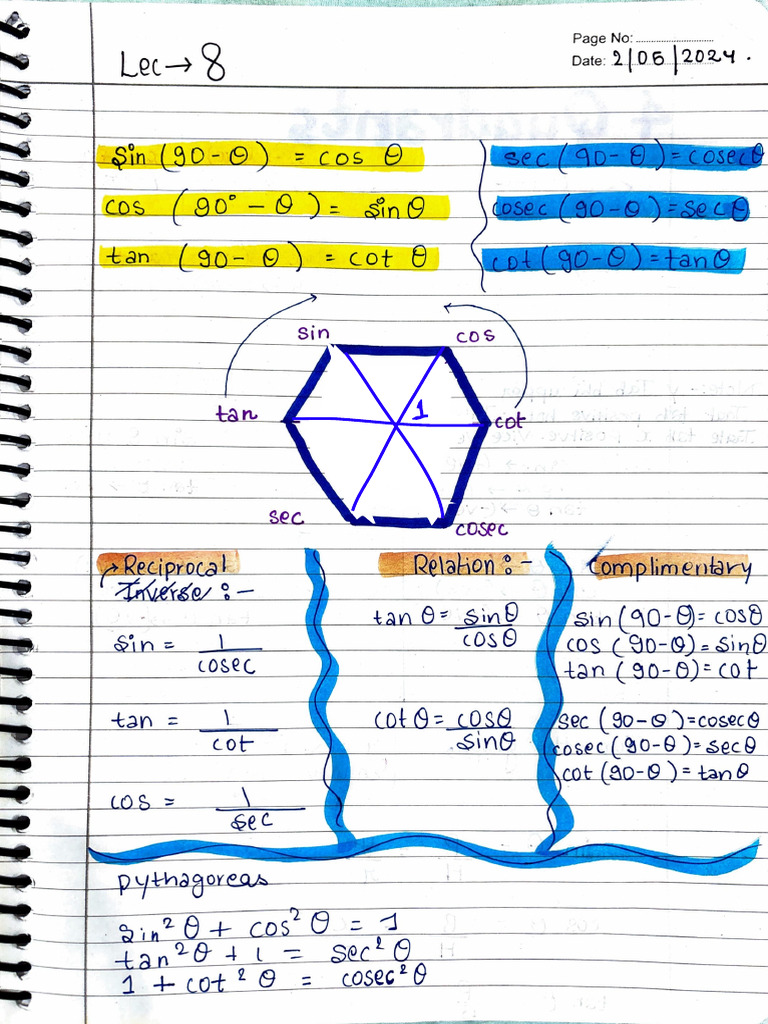 Page No:
Lec → 8
Date: 2/05/2024.
sin (90 - θ) = cos θ
cos (90° - θ) = sin θ
tan (90 - θ) = cot θ
sec (90 - θ) = cosec θ
cosec (90 - θ) = sec θ
cot (90 - θ) = tan θ
sin
cos
tan
1
cot
sec
cosec
Reciprocal
Inverse :-
sin = 1/cosec
tan = 1/cot
cos = 1/sec
Relation :-
tan θ = sin θ/cos θ
cot θ = cos θ/sin θ
Complimentary
sin (90 - θ) = cos θ
cos (90 - θ) = sin θ
tan (90 - θ) = cot
sec (90 - θ) = cosec θ
cosec (90 - θ) = sec θ
cot (90 - θ) = tan θ
pythagoreas
sin² θ + cos² θ = 1
tan² θ + 1 = sec² θ
1 + cot² θ = cosec² θ